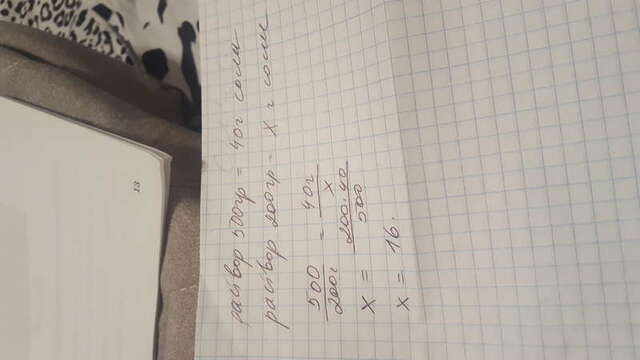 раствор 500гр = 40г соли
раствор 200гр - х г соли
500/200г = 40г/х
х = 200·40/500
х = 16.
13